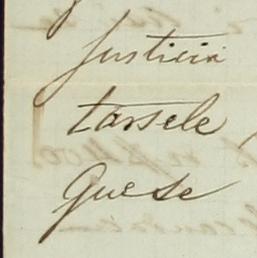 Justicia
tarsele
que se